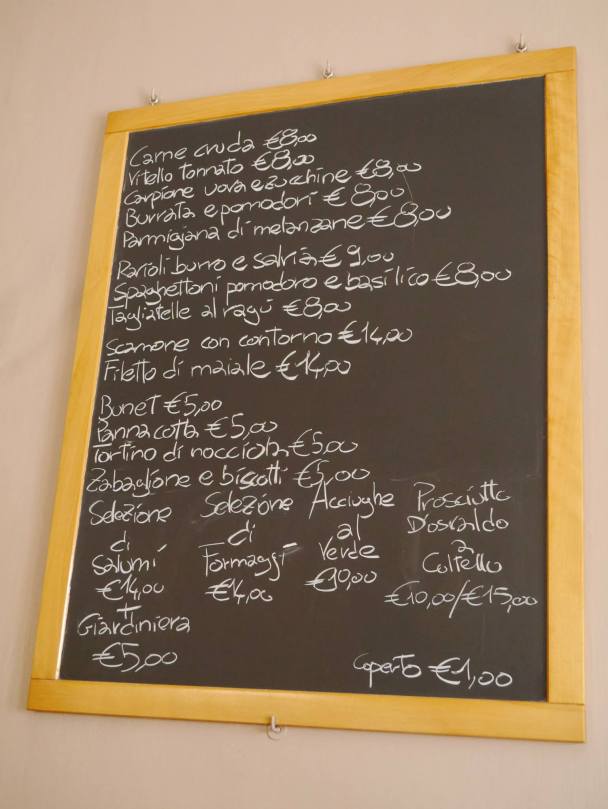 Carne cruda €8,00
Vitello tonnato €8,00
Carpione uova e zucchine €8,00
Burrata e pomodori €8,00
Parmigiana di melanzane €8,00
Ravioli burro e salvia €9,00
Spaghettoni pomodoro e basilico €8,00
Tagliatelle al ragù €8,00
scamone con contorno €14,00
Filetto di maiale €14,00
Bunet €5,00
Panna cotta €5,00
Tortino di nocciola €5,00
Zabaglione e biscotti €5,00
Selezione
di
Salumi
€14,00
+
Giardiniera
€5,00
Selezione
di
Formaggi
€14,00
Acciughe
al
Verde
€10,00
Prosciutto
D'osvaldo
a
Coltello
€10,00/€15,00
Coperto €1,00